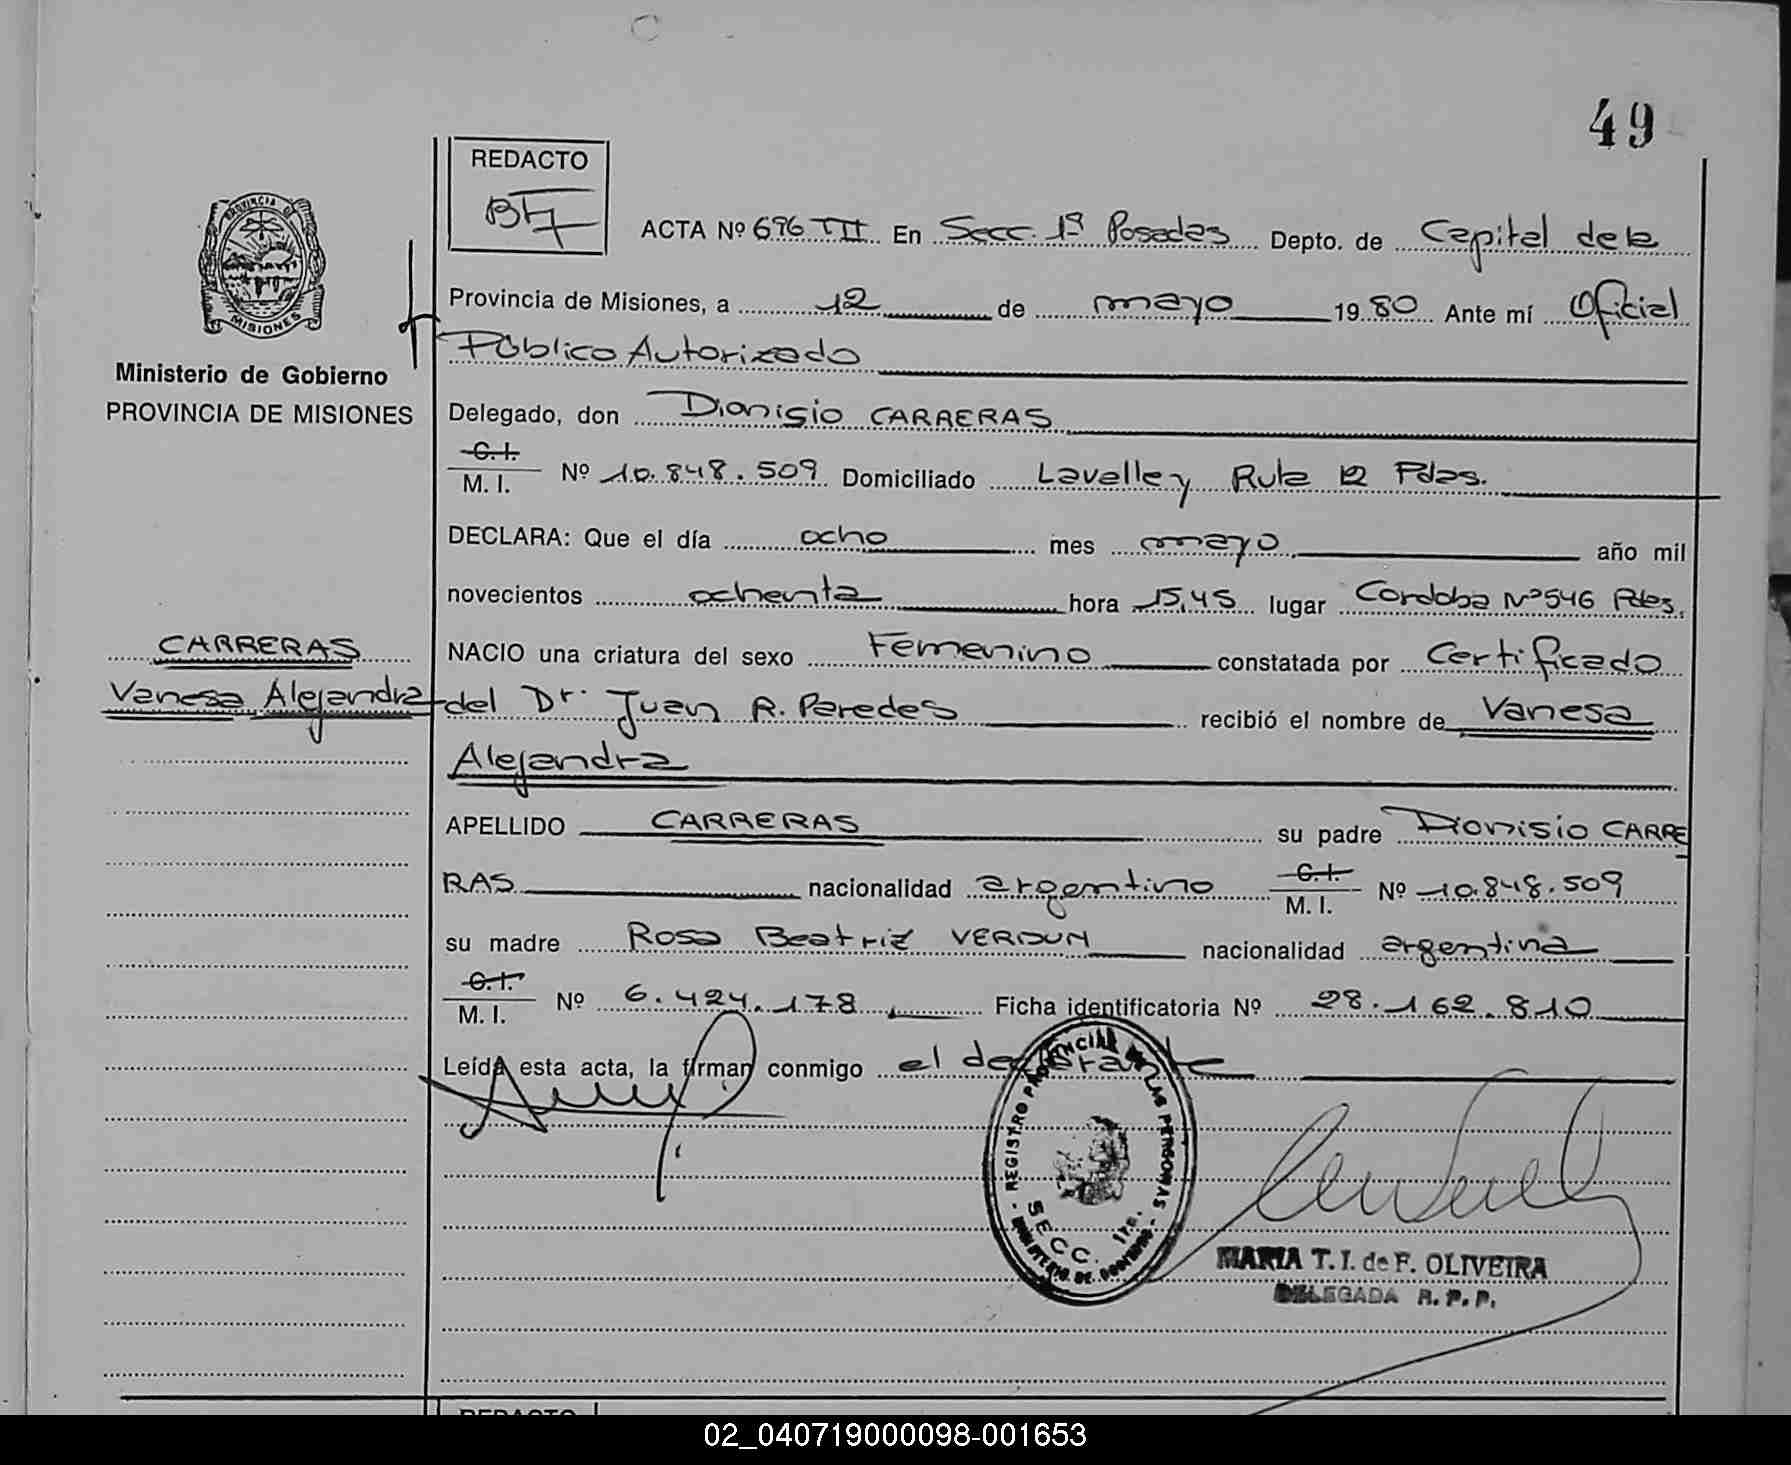 49
REDACTO
PROVINCIA DE
MISIONES
Ministerio de Gobierno
PROVINCIA DE MISIONES
ACTA Nº 696 III En Secc. 1ª Posadas Depto. de Capital de la
Provincia de Misiones, a 12 de mayo 1980 Ante mí Oficial
Público Autorizado
Delegado, don Dionisio CARRERAS
C.I.
M. I. Nº 10.848.509 Domiciliado Lavalle y Ruta 12 Pdas.
DECLARA: Que el día ocho mes mayo año mil
novecientos ochenta hora 15,45 lugar Cordoba Nº 546 Pdas.
CARRERAS
Vanesa Alejandra
NACIO una criatura del sexo Femenino constatada por Certificado
del Dr. Juan R. Paredes recibió el nombre de Vanesa
Alejandra
APELLIDO CARRERAS su padre Dionisio CARRE
RAS nacionalidad argentino C.I. M. I. Nº 10.848.509
su madre Rosa Beatriz VERDUN nacionalidad argentina
C.I.
M. I. Nº 6.424.178 Ficha identificatoria Nº 28.162.810
Leída esta acta, la firman conmigo el declarante
REGISTRO PROVINCIAL DE LAS PERSONAS
SECC. 1ra.
MINISTERIO DE GOBIERNO
MARIA T. I. de F. OLIVEIRA
DELEGADA R. P. P.
REDACTO
02_040719000098-001653